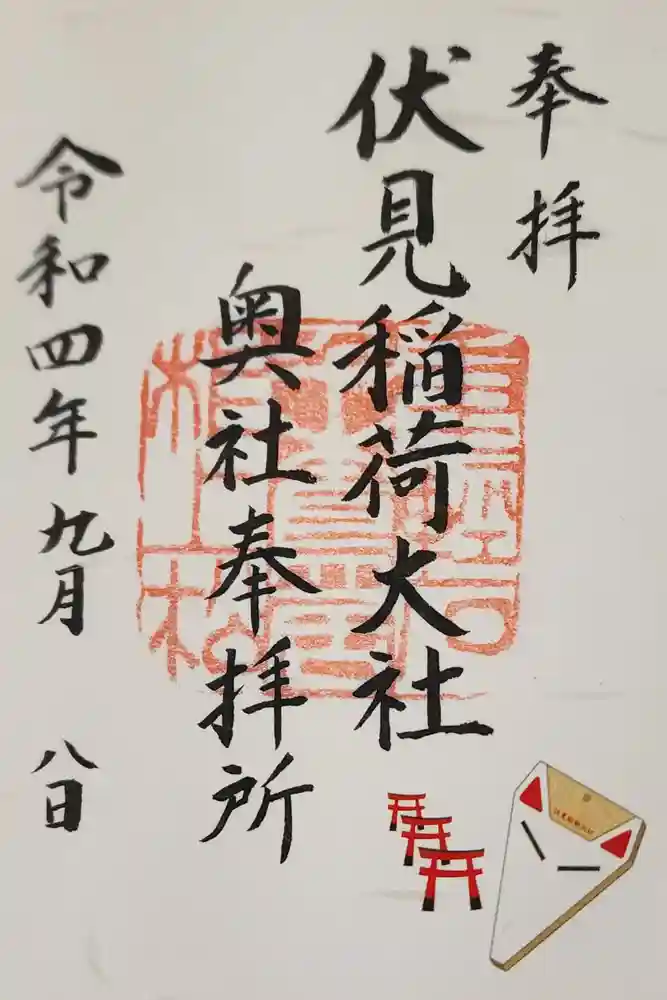 奉拝
伏見稲荷大社
奥社奉拝所
令和四年九月 八日